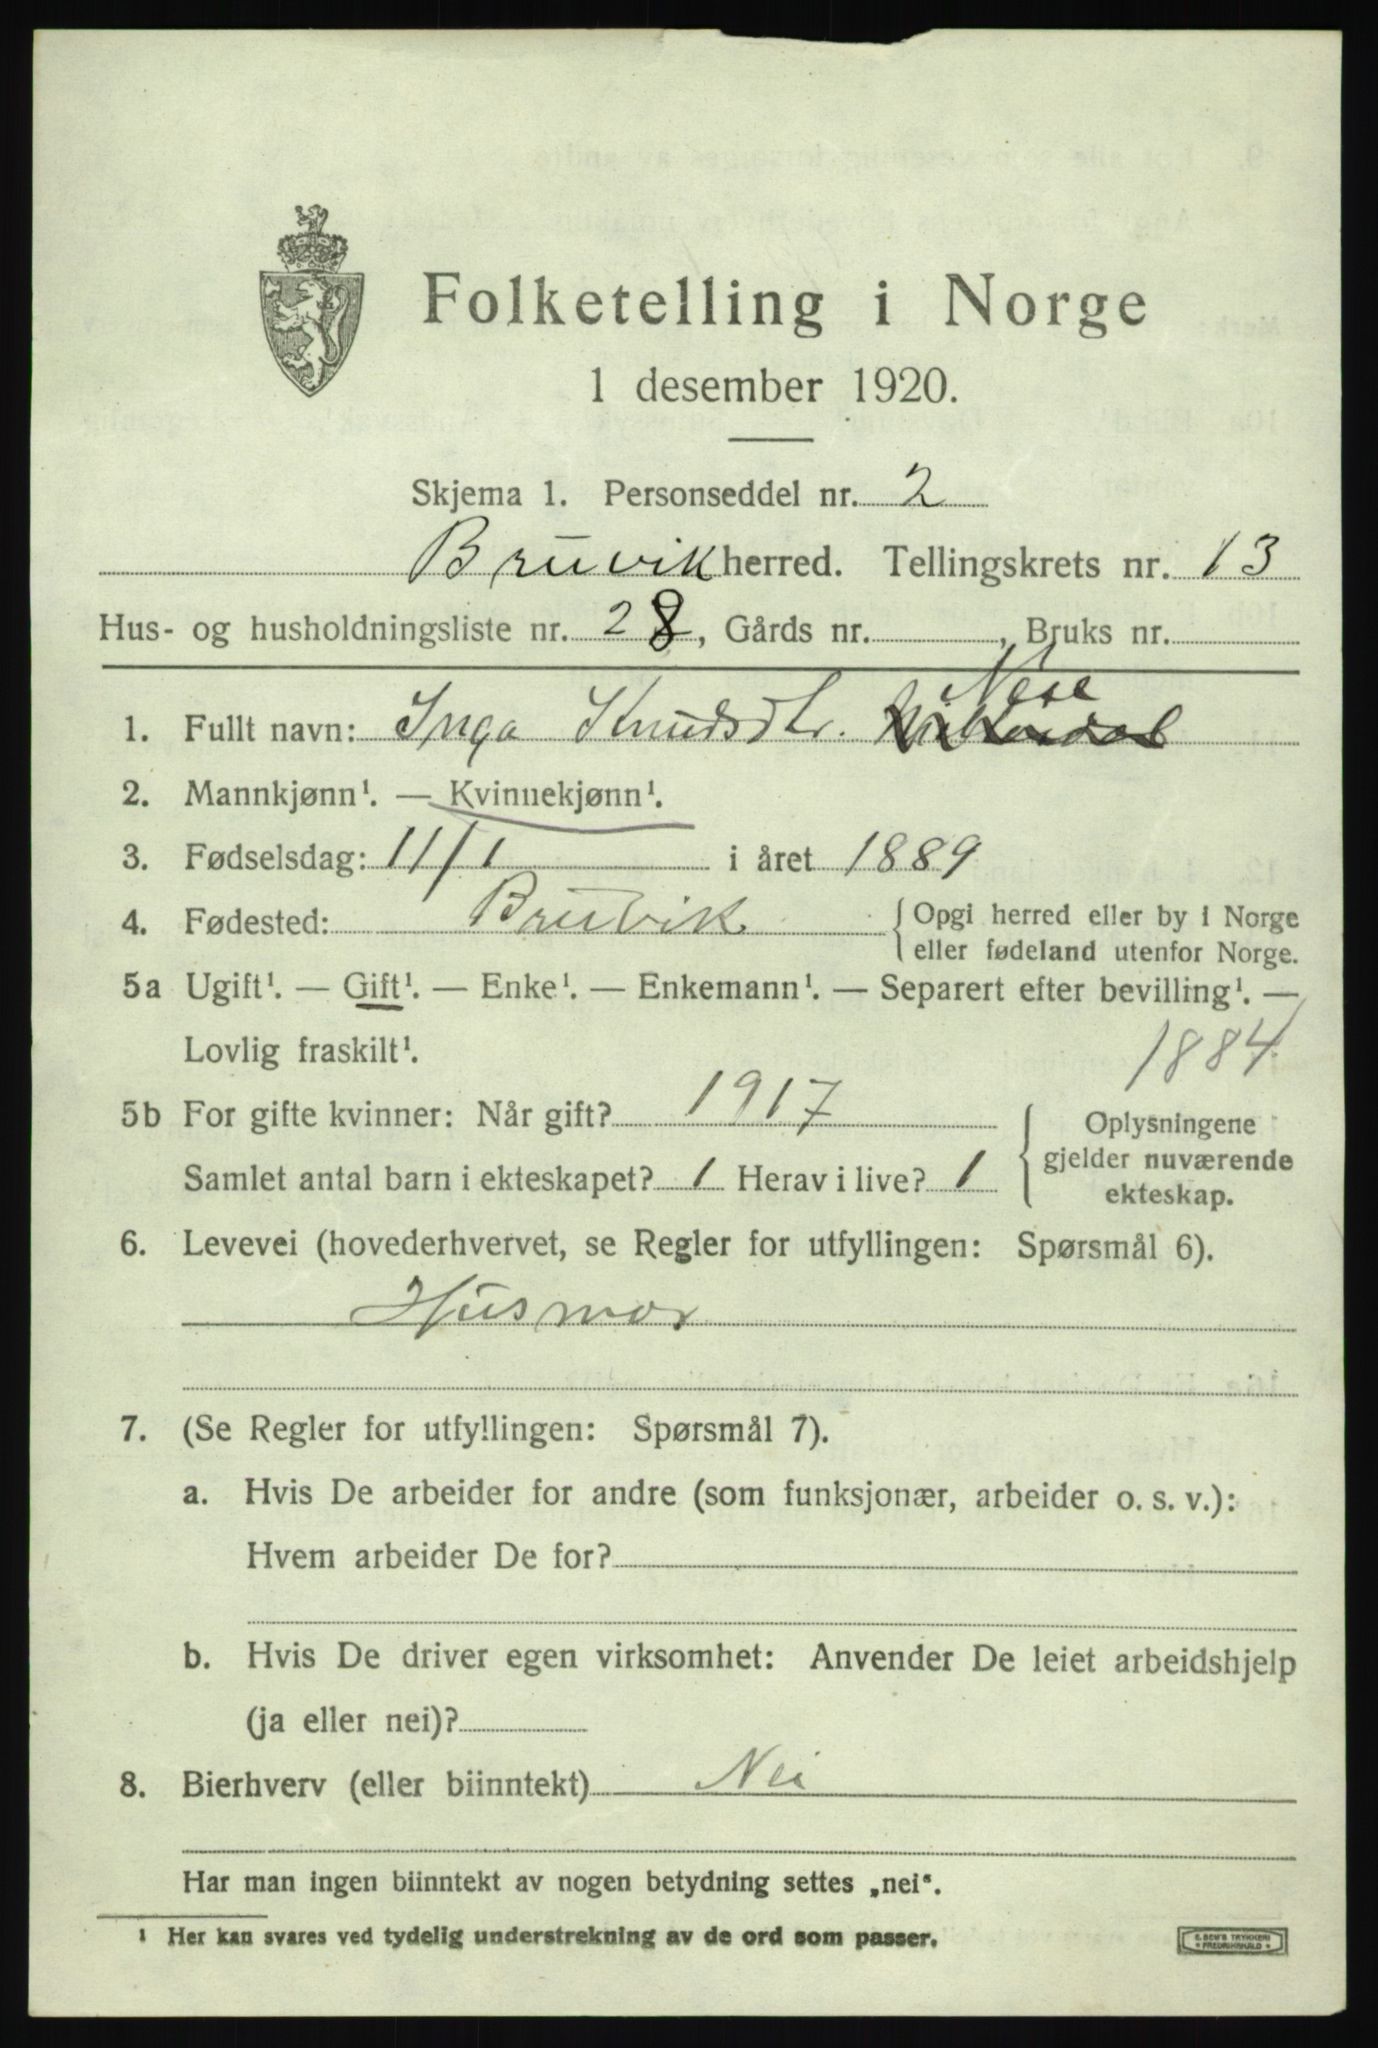 Folketelling i Norge
1 desember 1920.
Skjema 1. Personseddel nr. 2
Bruvik herred. Tellingskrets nr. 13
Hus- og husholdningsliste nr. 28, Gårds nr. , Bruks nr.
Nese
1. Fullt navn: Inga Knudsdtr.
2. Mannkjønn¹. — Kvinnekjønn¹.
3. Fødselsdag: 11/1 i året 1889
4. Fødested: Bruvik { Opgi herred eller by i Norge
eller fødeland utenfor Norge.
5a Ugift¹. — Gift¹. — Enke¹. — Enkemann¹. — Separert efter bevilling¹. —
Lovlig fraskilt¹. 1884
5b For gifte kvinner: Når gift? 1917 { Oplysningene
gjelder nuværende
Samlet antal barn i ekteskapet? 1 Herav i live? 1
ekteskap.
6. Levevei (hovederhvervet, se Regler for utfyllingen: Spørsmål 6).
Husmor
7. (Se Regler for utfyllingen: Spørsmål 7).
a. Hvis De arbeider for andre (som funksjonær, arbeider o. s. v.):
Hvem arbeider De for?
b. Hvis De driver egen virksomhet: Anvender De leiet arbeidshjelp
(ja eller nei)?
8. Bierhverv (eller biinntekt) Nei
Har man ingen biinntekt av nogen betydning settes „nei“.
¹ Her kan svares ved tydelig understrekning av de ord som passer.
TRYKKERI
FREDRIKSHALD